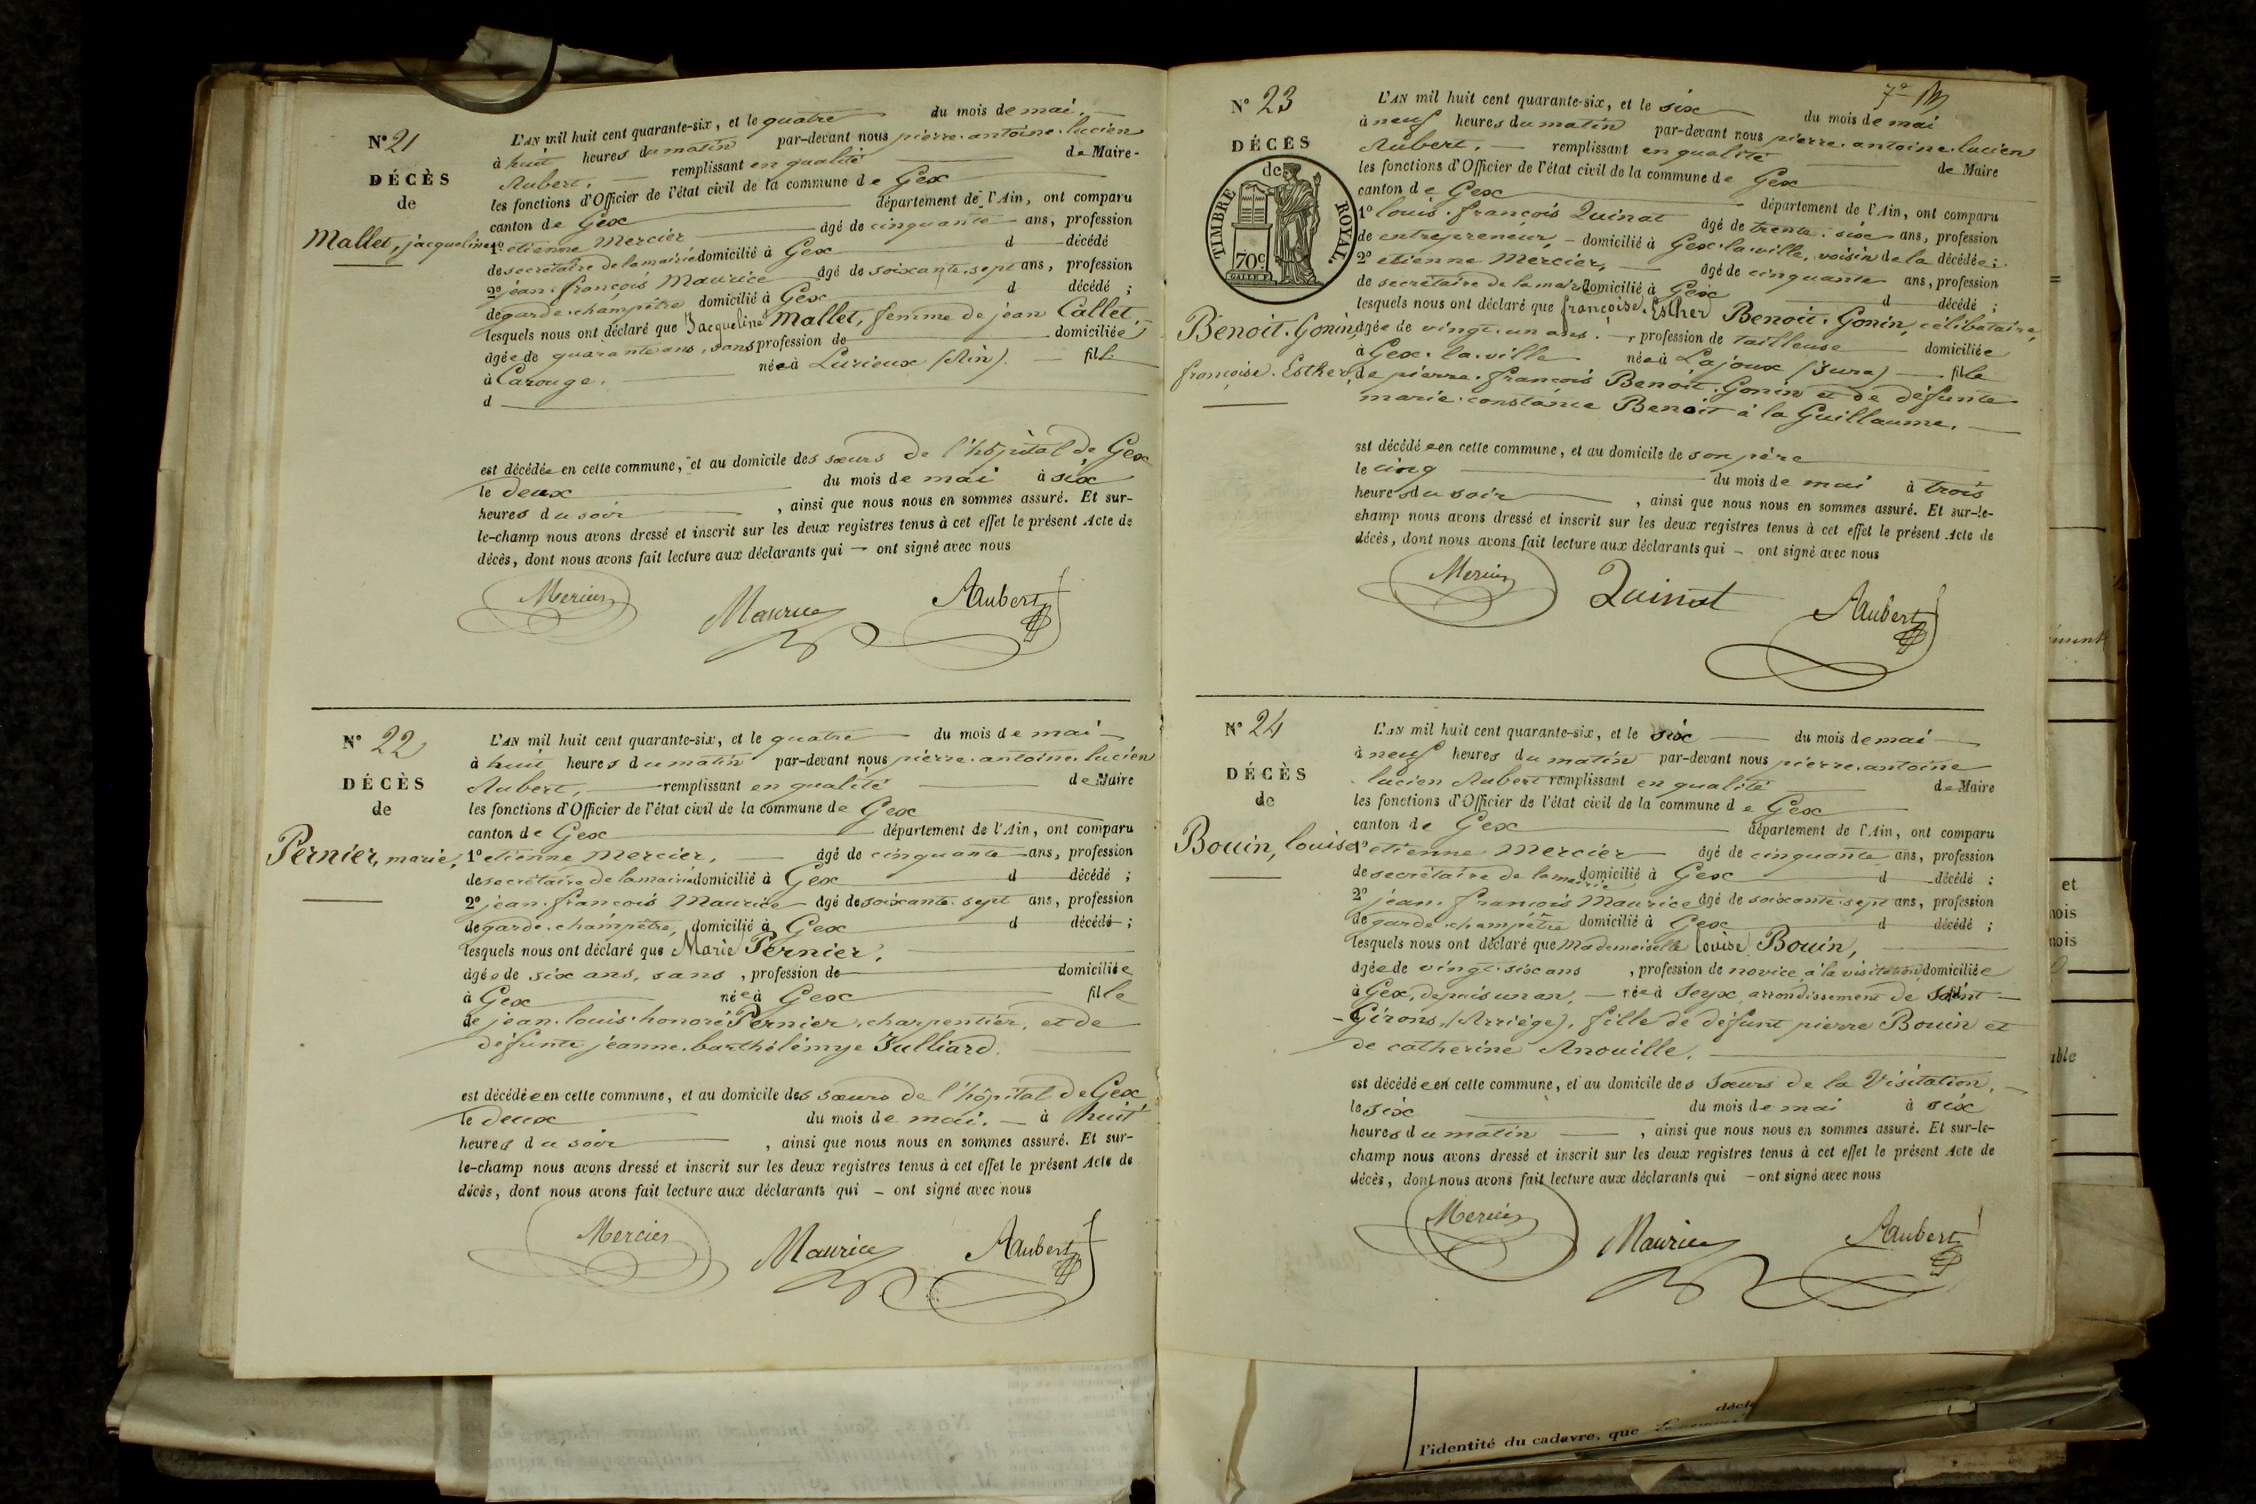 N° 21
DÉCÈS
de
Mallet, jacqueline
L'AN mil huit cent quarante-six, et le quatre du mois de mai
à huit heures du matin par-devant nous pierre antoine lucien
Aubert, remplissant en qualité de Maire
les fonctions d'Officier de l'état civil de la commune de Gex
canton de Gex département de l'Ain, ont comparu
1° etienne Mercier âgé de cinquante ans, profession
de secrétaire de la mairie domicilié à Gex d décédé
2° jean françois Maurice âgé de soixante sept ans, profession
de garde champêtre domicilié à Gex d décédé ;
lesquels nous ont déclaré que Jacqueline Mallet, femme de jean Callet,
âgée de quarante ans, sans profession de domiciliée
à Carouge. née à Lurieux (Ain). fille
d
est décédée en cette commune, et au domicile des sœurs de l'hôpital de Gex
le deux du mois de mai à six
heures du soir , ainsi que nous nous en sommes assuré. Et sur-
le-champ nous avons dressé et inscrit sur les deux registres tenus à cet effet le présent Acte de
décès, dont nous avons fait lecture aux déclarants qui — ont signé avec nous
Mercier Maurice Aubert
N° 22
DÉCÈS
de
Pernier, marie,
L'AN mil huit cent quarante-six, et le quatre du mois de mai
à huit heures du matin par-devant nous pierre antoine lucien
Aubert, remplissant en qualité de Maire
les fonctions d'Officier de l'état civil de la commune de Gex
canton de Gex département de l'Ain, ont comparu
1° etienne Mercier, âgé de cinquante ans, profession
de secrétaire de la mairie domicilié à Gex d décédé ;
2° jean françois Maurice âgé de soixante sept ans, profession
de garde champêtre, domicilié à Gex d décédé ;
lesquels nous ont déclaré que Marie Pernier,
âgée de six ans, sans , profession de domiciliée
à Gex née à Gex fille
de jean louis honoré Pernier, charpentier, et de
défunte jeanne barthélémye Julliard.
est décédée en cette commune, et au domicile des sœurs de l'hôpital de Gex
le deux du mois de mai. à huit
heures du soir , ainsi que nous nous en sommes assuré. Et sur-
le-champ nous avons dressé et inscrit sur les deux registres tenus à cet effet le présent Acte de
décès, dont nous avons fait lecture aux déclarants qui — ont signé avec nous
Mercier Maurice Aubert
7e
N° 23
DÉCÈS
de
TIMBRE ROYAL
70c
Benoit Gonin,
françoise Esther,
L'AN mil huit cent quarante-six, et le six du mois de mai
à neuf heures du matin par-devant nous pierre antoine lucien
Aubert, remplissant en qualité de Maire
les fonctions d'Officier de l'état civil de la commune de Gex
canton de Gex département de l'Ain, ont comparu
1° louis françois Quinat âgé de trente six ans, profession
de entrepreneur, domicilié à Gex-la-ville, voisin de la décédée ;
2° etienne Mercier, âgé de cinquante ans, profession
de secrétaire de la mairie domicilié à Gex d décédé ;
lesquels nous ont déclaré que françoise Esther Benoit Gonin, célibataire,
âgée de vingt un ans , profession de tailleuse domiciliée
à Gex-la-ville née à Lajoux (Jura) fille
de pierre françois Benoit Gonin et de défunte
marie constance Benoit à la Guillaume.
est décédée en cette commune, et au domicile de son père
le cinq du mois de mai à trois
heures du soir , ainsi que nous nous en sommes assuré. Et sur-le-
champ nous avons dressé et inscrit sur les deux registres tenus à cet effet le présent Acte de
décès, dont nous avons fait lecture aux déclarants qui — ont signé avec nous
Mercier Quinat Aubert
N° 24
DÉCÈS
de
Bouin, louise
L'AN mil huit cent quarante-six, et le six du mois de mai
à neuf heures du matin par-devant nous pierre antoine
lucien Aubert remplissant en qualité de Maire
les fonctions d'Officier de l'état civil de la commune de Gex
canton de Gex département de l'Ain, ont comparu
1° etienne Mercier âgé de cinquante ans, profession
de secrétaire de la mairie domicilié à Gex d décédé ;
2° jean françois Maurice âgé de soixante sept ans, profession
de garde champêtre domicilié à Gex d décédé ;
lesquels nous ont déclaré que mademoiselle louise Bouin,
âgée de vingt six ans , profession de novice à la visitation domiciliée
à Gex, depuis un an, née à Seyx, arrondissement de Saint
Gérons, (Arriége), fille de défunt pierre Bouin et
de catherine Anouille.
est décédée en cette commune, et au domicile des Sœurs de la Visitation,
le six du mois de mai à six
heures du matin , ainsi que nous nous en sommes assuré. Et sur-le-
champ nous avons dressé et inscrit sur les deux registres tenus à cet effet le présent Acte de
décès, dont nous avons fait lecture aux déclarants qui — ont signé avec nous
Mercier Maurice Aubert
et
mois
l'identité du cadavre, que